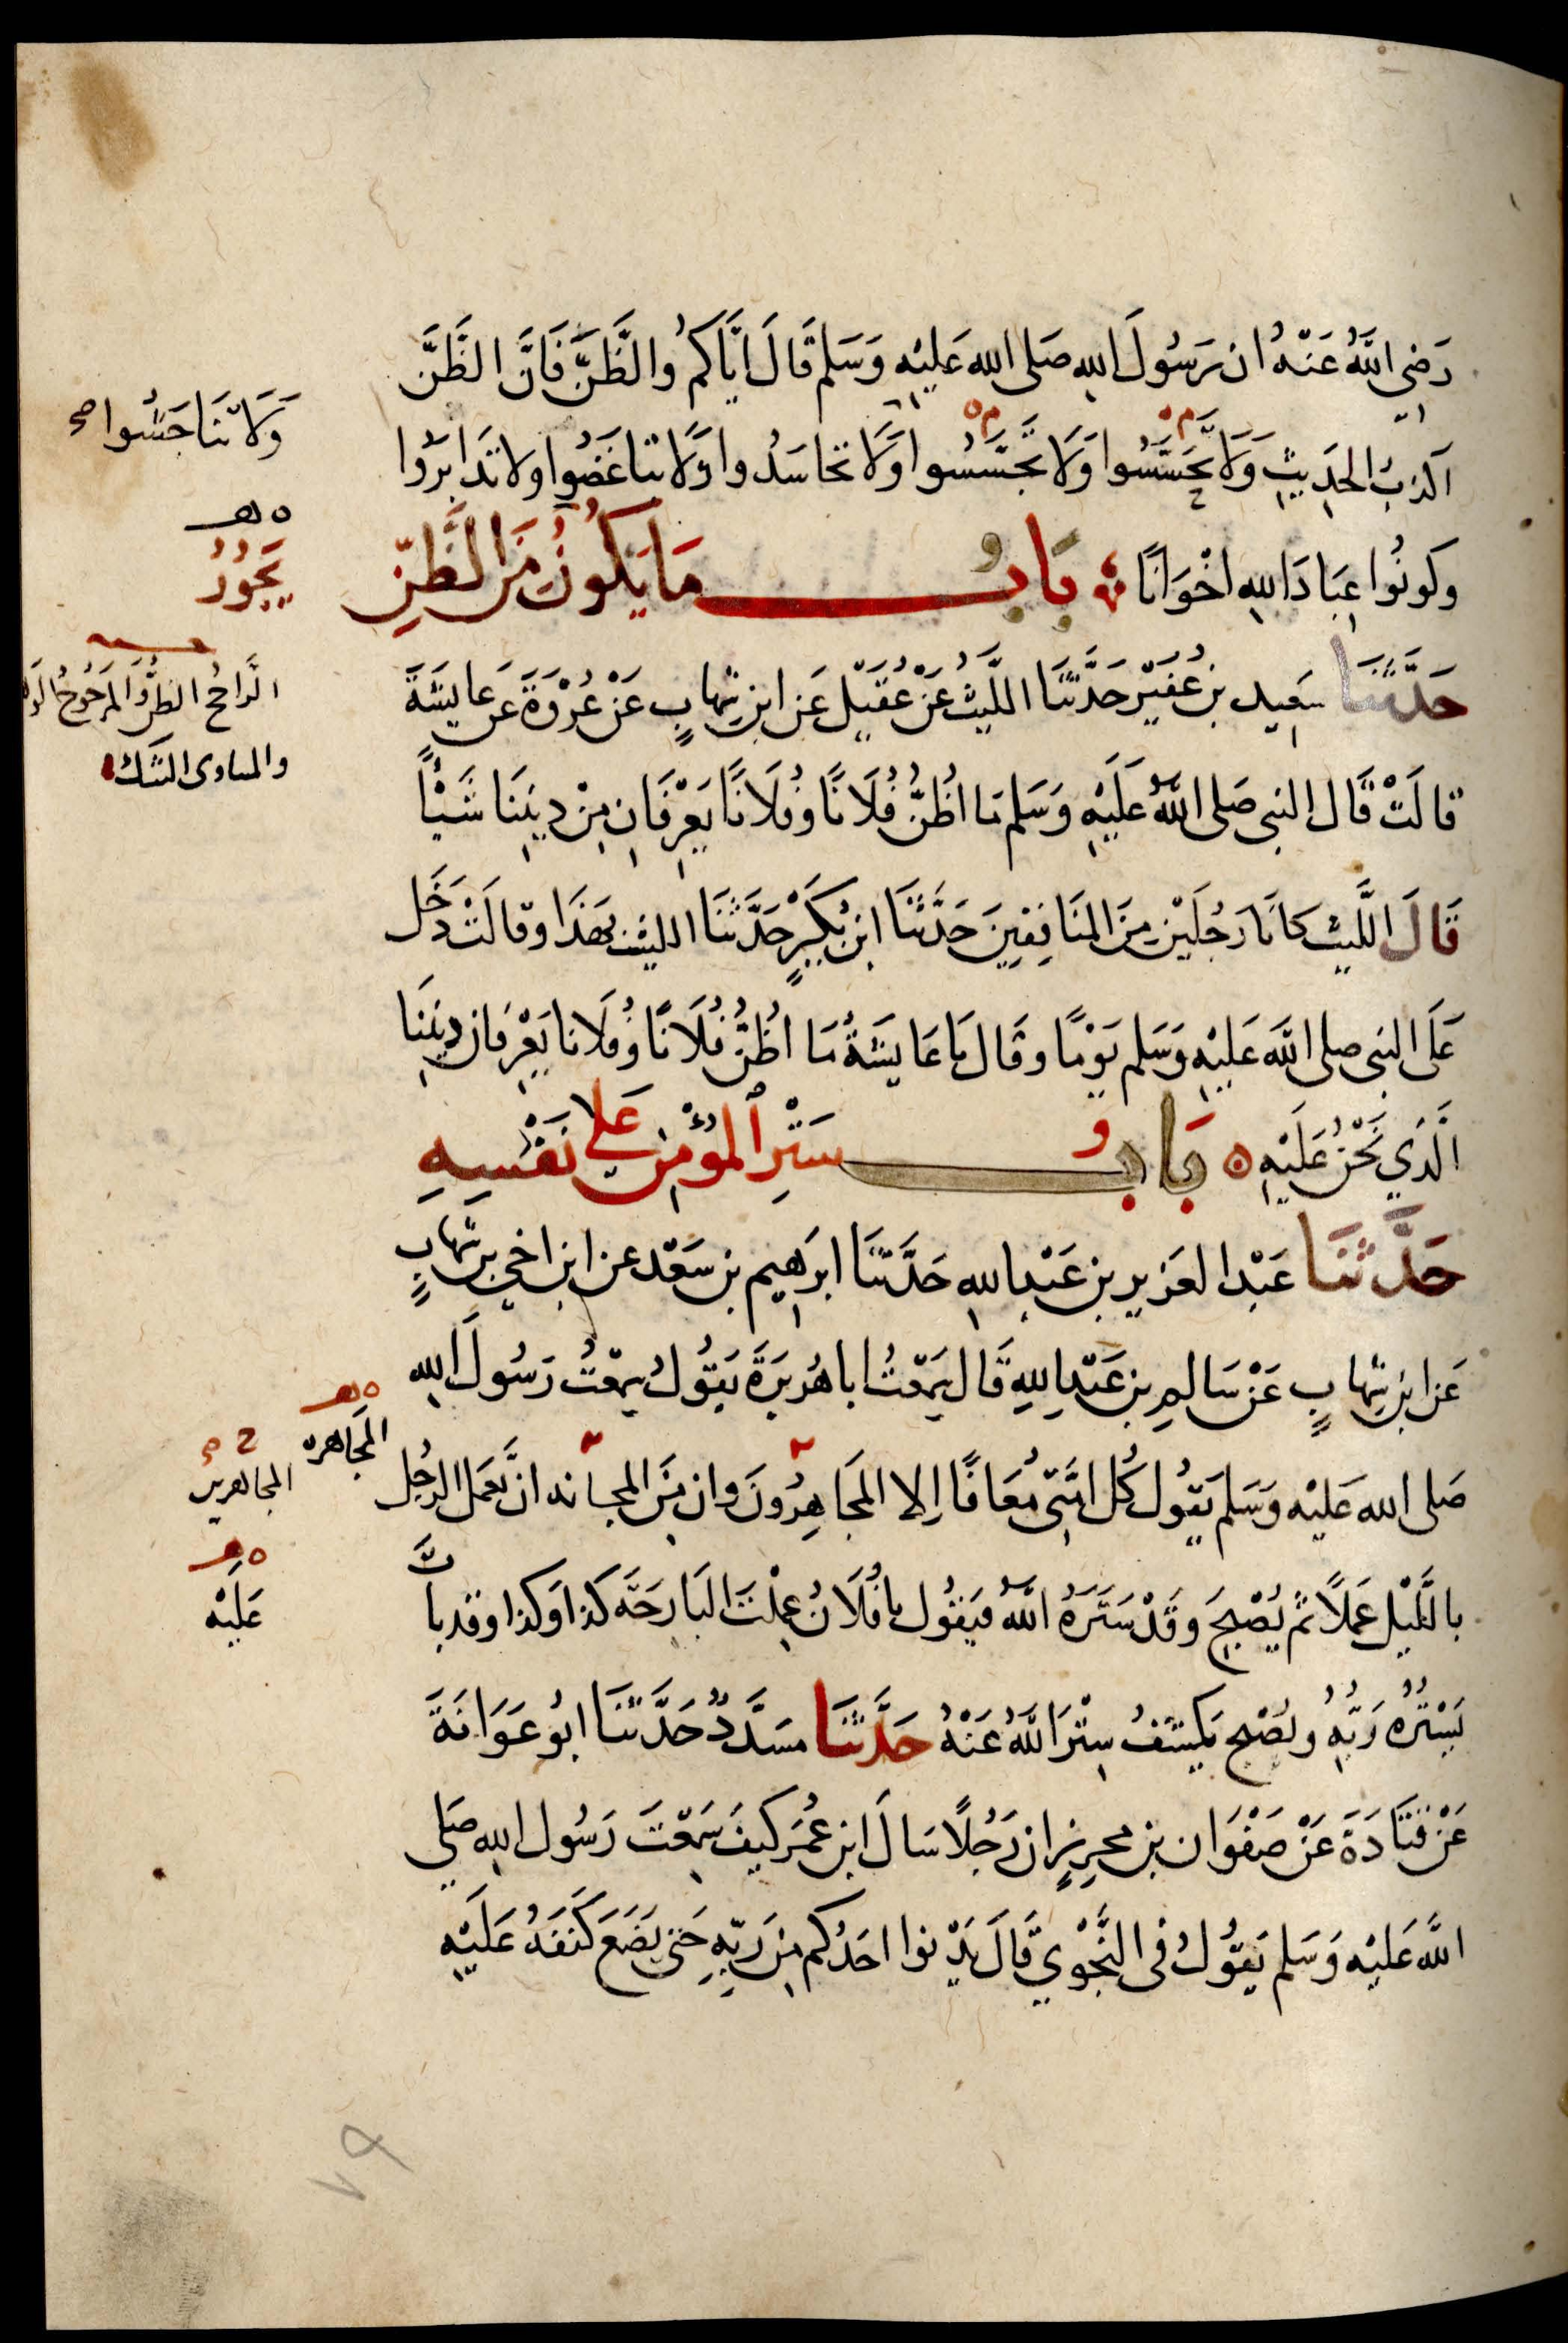 رَضِيَ اللَّهُ عَنْهُ ان رَسُولَ اللهِ صَلى الله عَلَيْهِ وَسَلم قَالَ ايَّاكُمْ والظَّنَّ فَانَّ الظَّنَّ
اكذبُ الحَدِيثِ وَلَا تَحَسَّسُوا وَلَا تَجَسَّسُوا وَلَا تحاسَدُوا وَلَا تباغَضُوا ولا تَدَابَرُوا
وَلَا تَنَاجَشُوا صح
وكونُوا عِبَادَ اللهِ اخْوَانًا بَابُ مَا يَكُونُ مِنَ الظَّنِّ
ه هـ
يَجُوزُ
حَدَّثَنَا سَعِيد بنُ عُفَيْرٍ حَدَّثَنَا اللَّيْثُ عَنْ عُقَيْلٍ عَنِ ابنِ شِهابٍ عَنْ عُرْوَةَ عَن عَايشَةَ
الرَّاجحُ الظنُّ وَالمَرْجُوحُ
والمساوى الشك
قالَتْ قَالَ النبي صَلى اللَّهُ عَلَيْهِ وَسَلم مَا اظُنُّ فُلَانًا وفُلَانًا يَعْرِفَانِ مِنْ دِينِنَا شَيْأً
قَالَ اللَّيث كانَا رَجُلَيْنِ مِنَ المنَافِقِينَ حَدَّثَنَا ابنُ بُكَيْرٍ حَدَّثَنَا الليث بهَذَا وقالَتْ دَخَل
عَلَى النبي صلى اللَّه عَلَيْهِ وَسَلم يَوْمًا وقَالَ يَا عَايشَةُ مَا اظُنُّ فُلَانًا وفُلَانا يَعْرِفَان دِينَنَا
الَّذِي نَحْنُ عَلَيْهِ ه بَابُ سَتْرِ المُؤْمِنِ عَلَى نَفْسِهِ
حَدَّثَنَا عَبْد العَزِيز بن عَبْدِ الله حَدَّثَنَا ابرَاهِيم بن سَعْد عن ابن اخي بن شِهابٍ
عَن ابنِ شِهابٍ عَنْ سَالِمِ بنِ عَبْدِ اللهِ قَالَ سَمِعْتُ ابا هُرَيْرَةَ يَقُولُ سِمعْتُ رَسُولَ اللهِ
صَلى الله عَليْه وَسَلم يَقُول كُل امَّتِي مُعَافًا إلا المُجَاهِرُونَ وان مِنَ المجانه انْ يَعمَل الرجُل
ه هـ
المُجَاهرة
المجاهرين
بالَّليْل عَمَلًا ثم يُصْبِحَ وقَدْ سَتَرَهُ اللَّهُ فيَقُول يا فُلَانُ عَمِلْتُ البَارِحَةَ كذا وكذا وقد باتَ
ه هـ
عَلَيْه
يَسْتُرُهُ رَبُّهُ ويُصْبِح يَكشفُ سِتْرَ اللَّهِ عَنْهُ حَدَّثَنَا مسَدَّدٌ حَدَّثنَا ابُو عَوَانَةَ
عَنْ قَتَادَةَ عَنْ صَفْوَان بن محرِزٍ ان رَجُلًا سَالَ ابن عُمَر كيفَ سَمِعْتَ رَسُول اللهِ صَلى
اللَّه عَلَيْه وَسَلم يَقُولُ في النَّجْوَي قَالَ يَدْنوا احَدُكم مِن رَبِّهِ حَتى يَضَعَ كَنَفَهُ عَلَيْهِ
٧٩